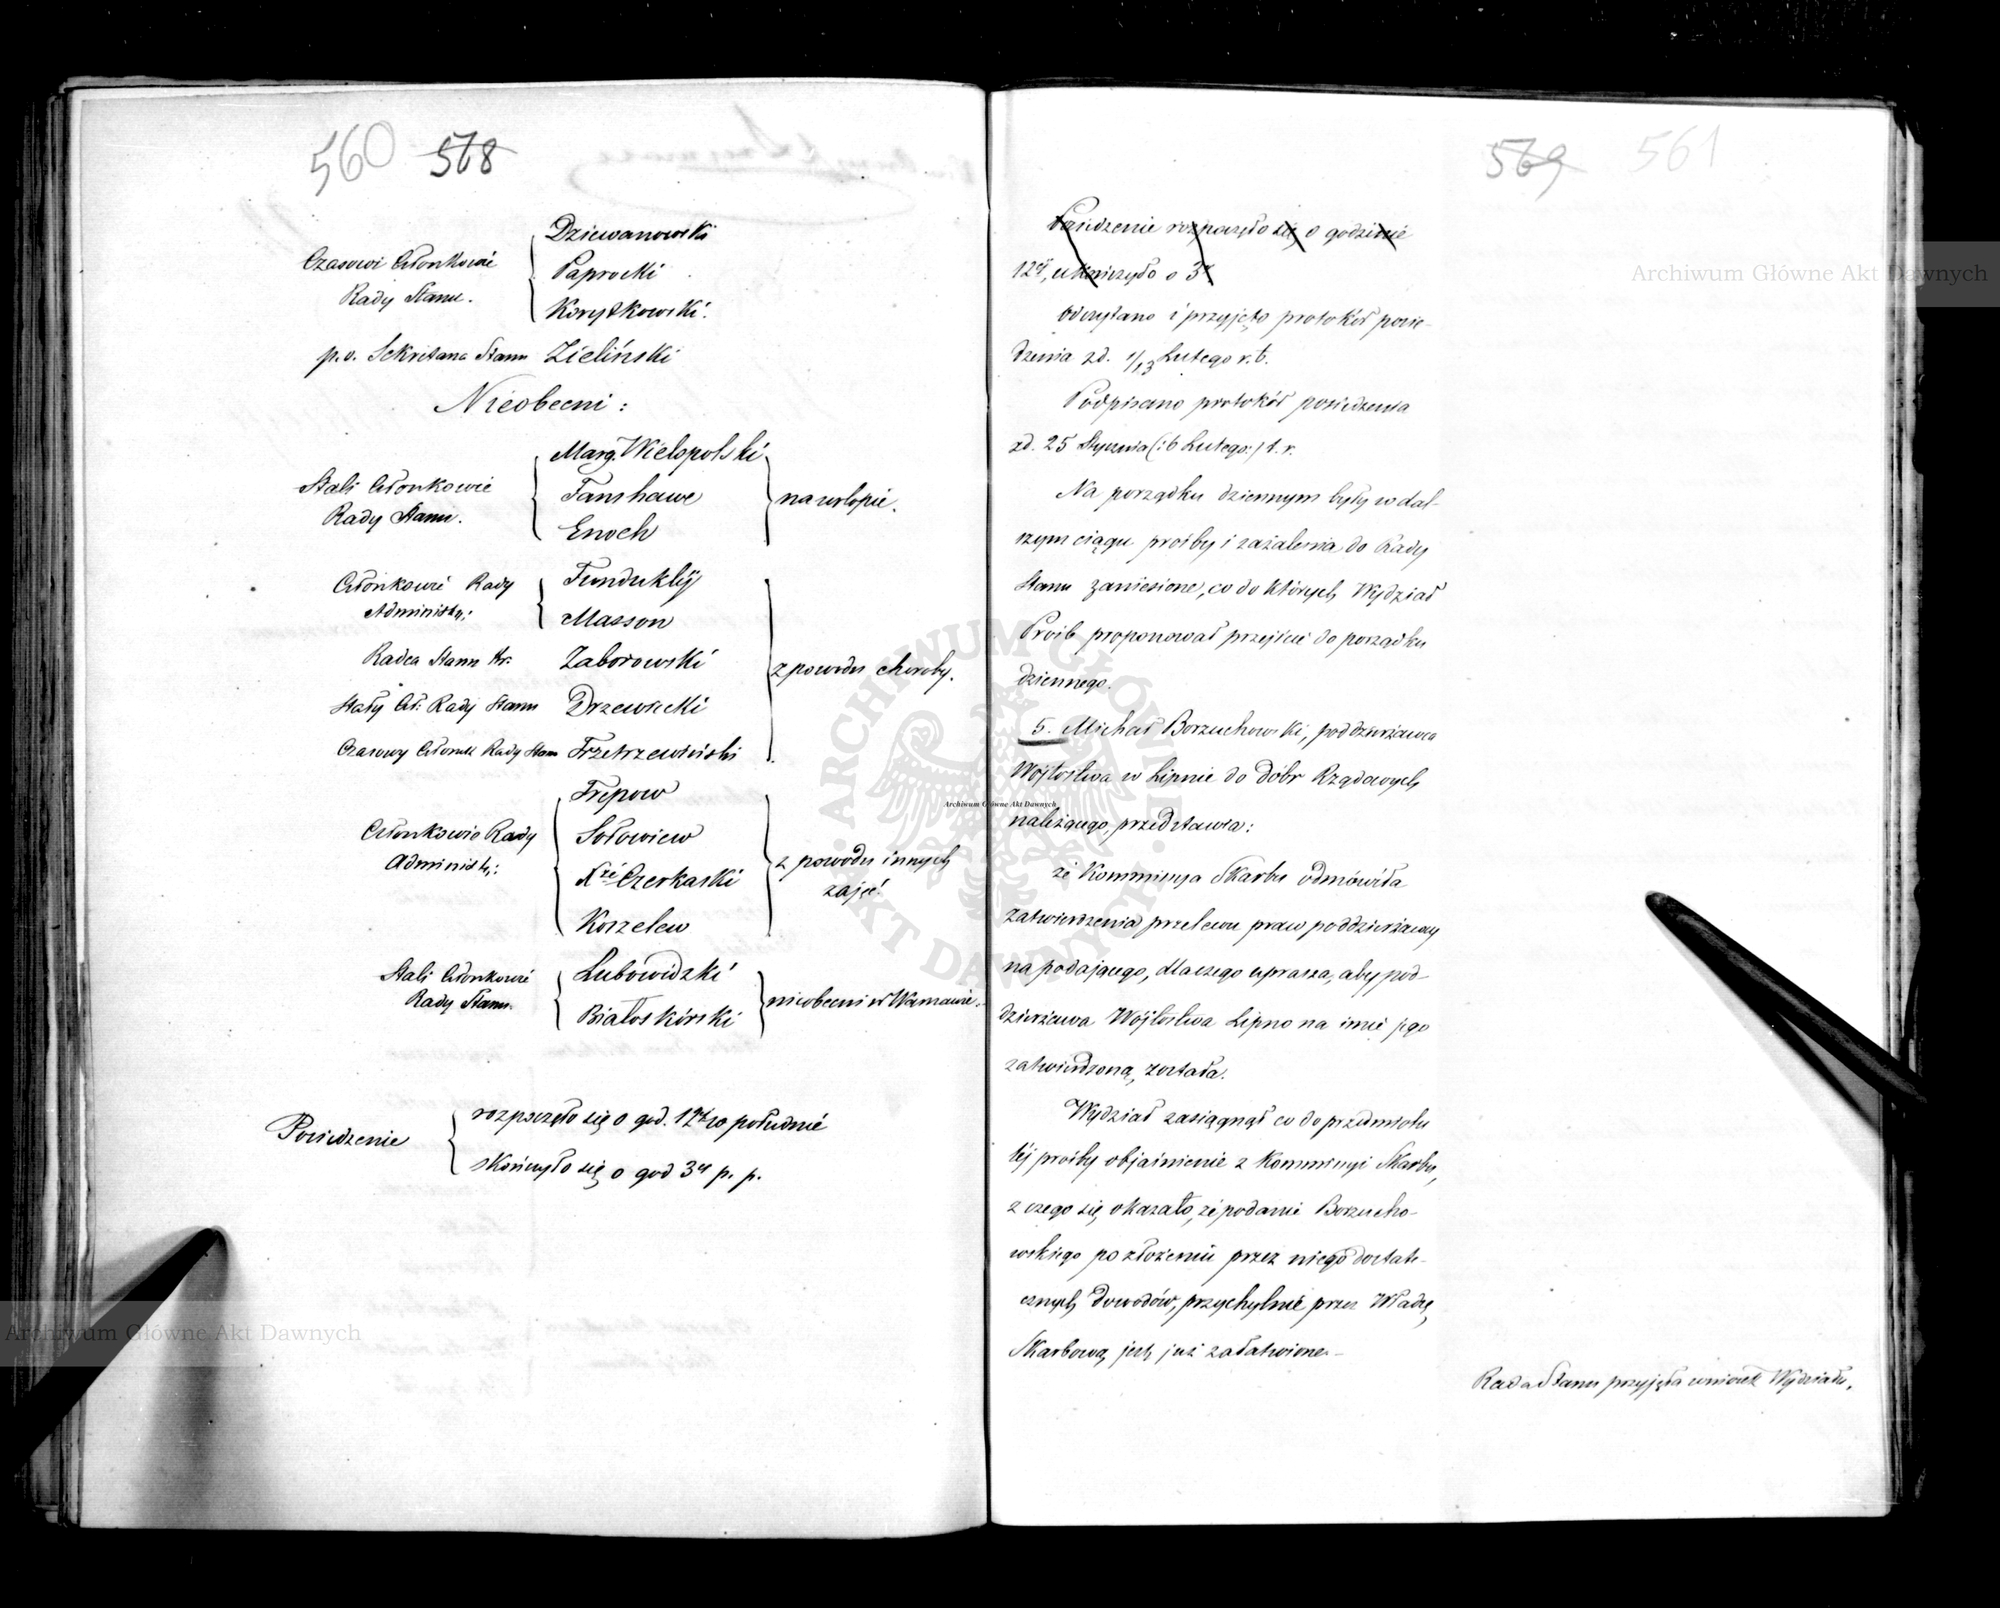 560 568
Czasowi Członkowie
Rady Stanu.
Dziewanowski
Paprocki
Korytkowski.
p. o. Sekretarza Stanu Zieliński
Nieobecni:
Stali Członkowie
Rady Stanu.
Marg. Wielopolski
Fanshawe
Enoch
na urlopie.
Członkowie Rady
Administr:
Funduklij
Masson
Radca Stanu Nr. Zaborowski
Stały Czł. Rady Stanu Drzewiecki
Czasowy Członek Rady Stanu Trzetrzewiński
z powodu choroby.
Członkowie Rady
Administr:
Trepow
Sołowiew
Xże Czerkaski
Koszelew
z powodu innych
zajęć.
Stali Członkowie
Rady Stanu.
Lubowidzki
Białoskórski
nieobecni w Warszawie.
Posiedzenie
rozpoczęło się o god. 12ej w południe
skończyło się o god 3ej p. p.
569 561
Posiedzenie rozpoczęło się o godzinie
12ej, ukończyło o 3ej
Odczytano i przyjęto protokół posie-
dzenia z d. 1/13 Lutego r. b.
Podpisano protokół posiedzenia
z d. 25 Stycznia (: 6 Lutego :) t. r.
Na porządku dziennym były w dal-
szym ciągu prośby i zażalenia do Rady
Stanu zaniesione, co do których Wydział
Próśb proponował przejście do porządku
dziennego.
5. Michał Borzuchowski, poddzierżawca
Wójtostwa w Lipnie do dóbr Rządowych
należącego, przedstawia:
że Kommissya Skarbu odmówiła
zatwierdzenia przelewu praw poddzierżawy
na podającego, dlaczego uprasza, aby pod-
dzierżawa Wójtostwa Lipno na imie jego
zatwierdzoną została.
Wydział zasięgnął co do przedmiotu
téj prośby objaśnienie z Kommissyi Skarbu,
z czego się okazało, że podanie Borzucho-
wskiego po złożeniu przez niego dostate-
cznych dowodów, przychylnie przez Władzę
Skarbową jest już załatwione.—
Rada Stanu przyjęła wniosek Wydziału.
Archiwum Główne Akt Dawnych
Archiwum Główne Akt Dawnych
Archiwum Główne Akt Dawnych
ARCHIWUM GŁÓWNE AKT DAWNYCH